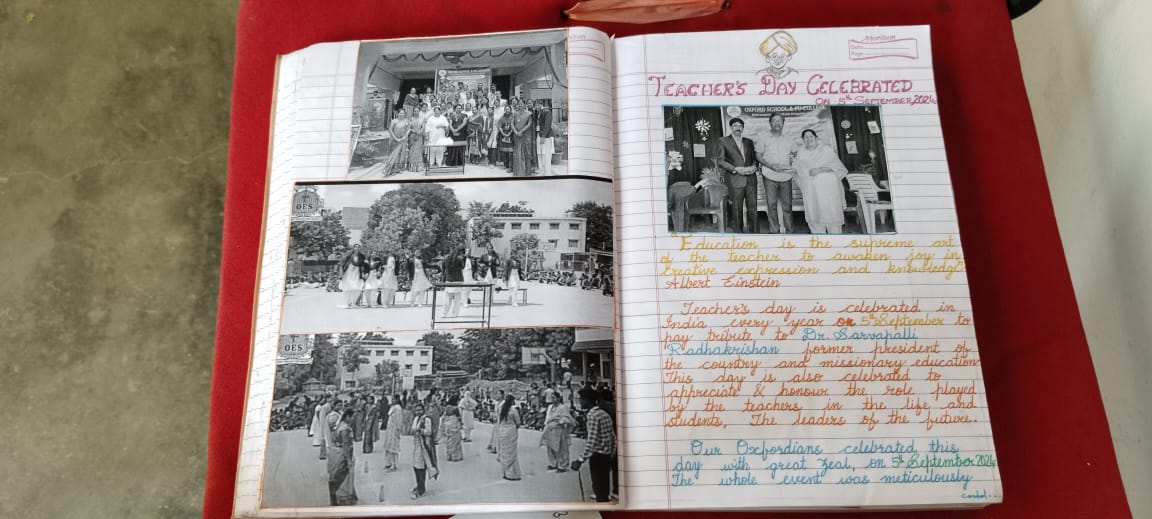 OES
OES
Date
Page
TEACHER'S DAY CELEBRATED
ON 5th SEPTEMBER, 2024
OXFORD SCHOOL & PU COLLEGE
"Education is the supreme art
of the teacher to awaken joy in
creative expression and knowledge"
Albert Einstein
Teacher's day is celebrated in
India every year on 5th September to
pay tribute to Dr. Sarvapalli
Radhakrishan former president of
the country and missionary education
This day is also celebrated to
appreciate & honour the role played
by the teachers in the life and
students, The leaders of the future.
Our Oxfordians celebrated this
day with great zeal, on 5th September 2024
The whole event was meticulously
Contd...